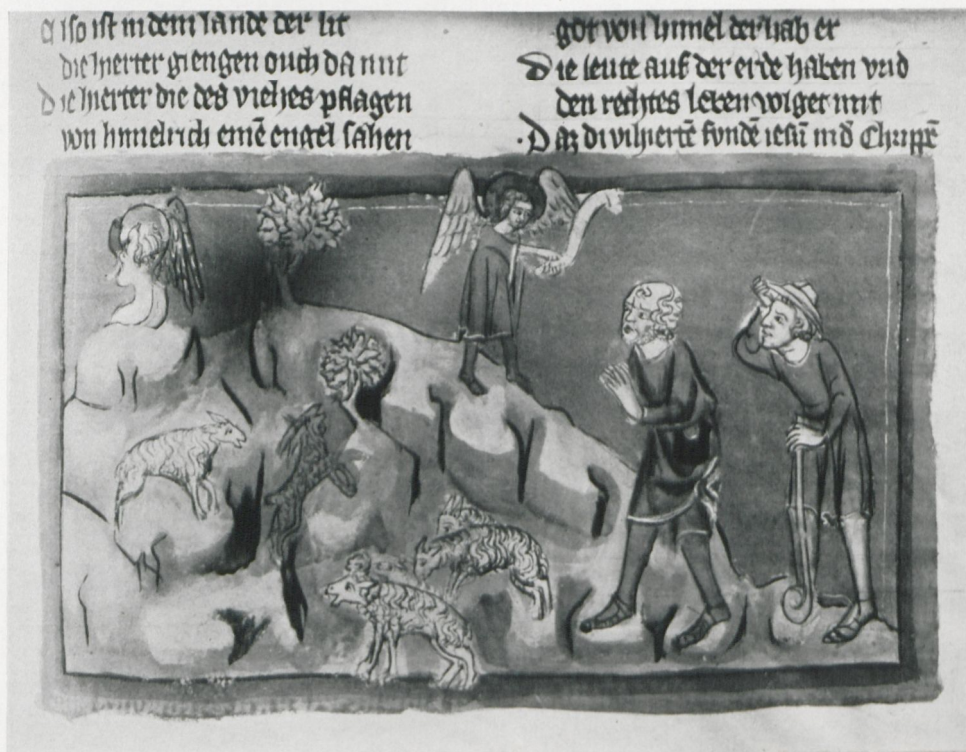 Also ist in dem lande der sit
die hierter giengen ouch da mit
Die hierter die des viehes pflagen
von himelrich einē engel sahen
got von himel der hab er
Die leute auf der erde haben vrid
den rechtes leben wiget mit
Daz di vihiertē fundē iesū in d̄ Chrippē